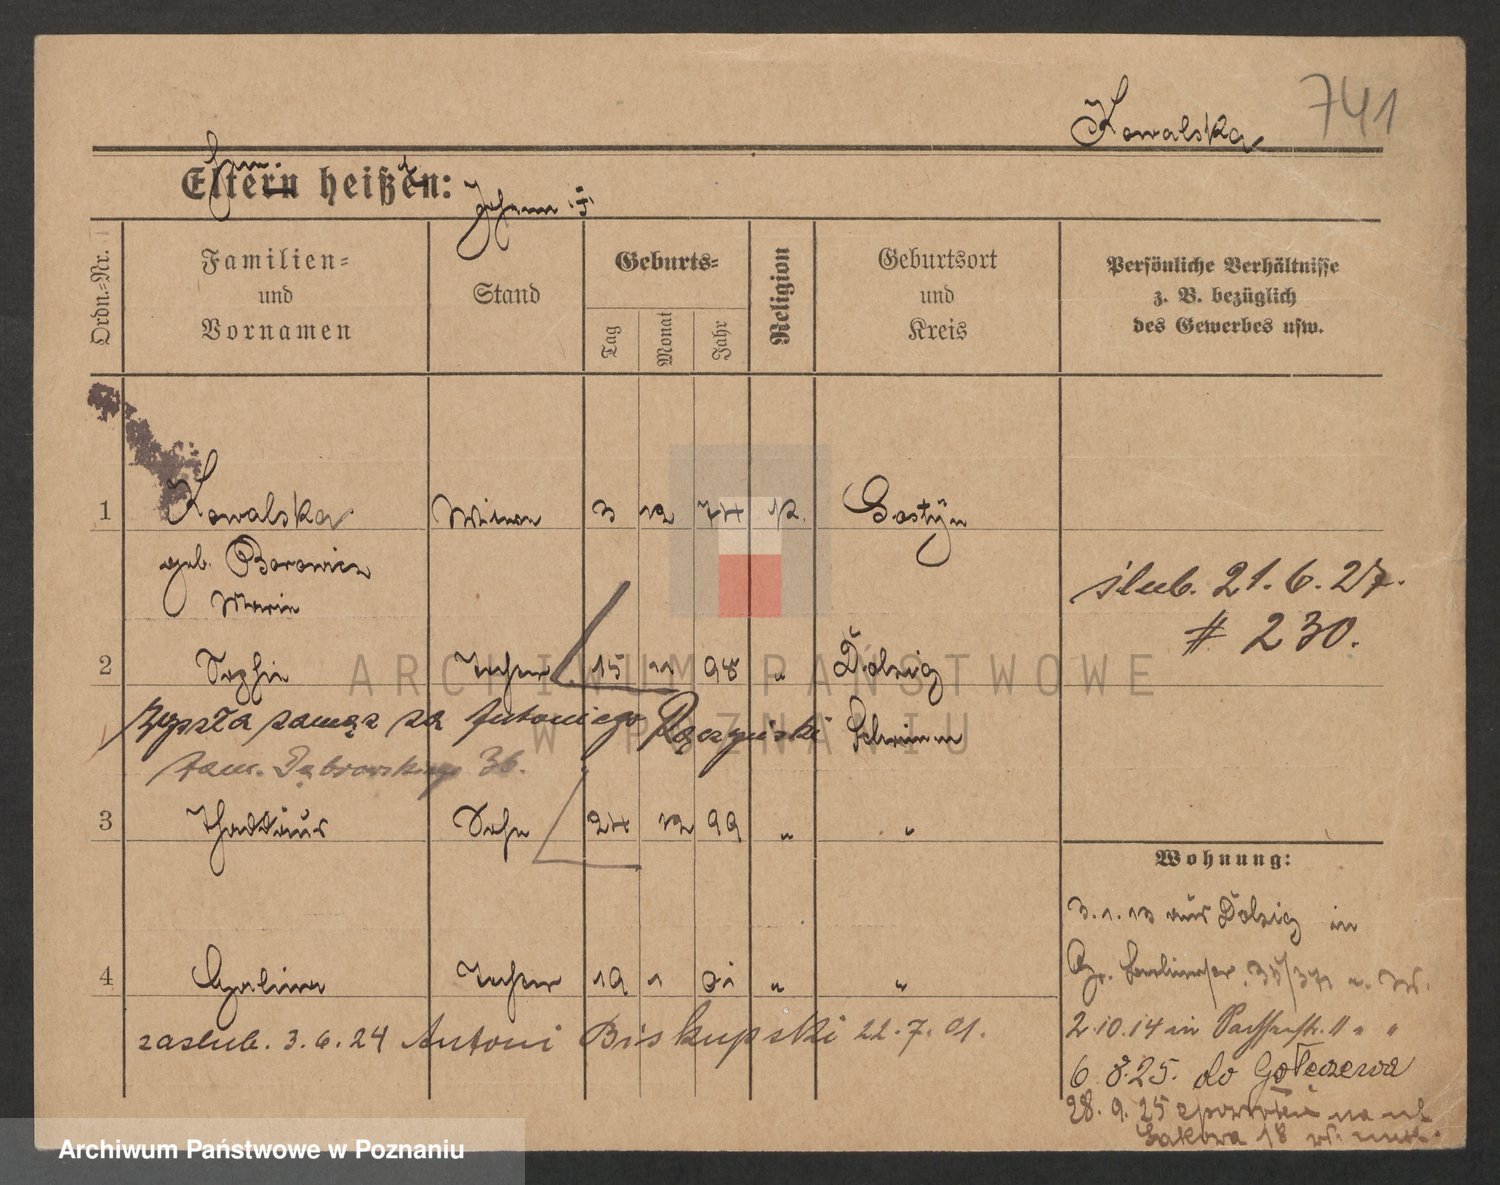 741
Kowalska
Eltern heißen:
Johann
Ordn.-Nr.
Familien-
und
Vornamen
Stand
Geburts-
Tag
Monat
Jahr
Religion
Geburtsort
und
Kreis
Persönliche Verhältnisse
z. B. bezüglich
des Gewerbes usw.
1 Kowalska Witwe 3 12 74 k. Gostyn
geb. Borowicz
Maria
ślub. 21. 6. 27.
# 230.
2 Sophie Tochter 15 11 98 " Dolzig
wyszła zamąż za Antoniego Rączyński Schrimm
zam. Dąbrowskiego 36.
3 Thaddäus Sohn 24 12 99 " "
Wohnung:
3. 1. 13 aus Dolzig in
Gr. Berlinerstr. 35/37
4 Halina Tochter 19 1 01 " "
2. 10. 14 in 11 " "
zaślub. 3. 6. 24 Antoni Biskupski 22. 7. 01.
6. 8. 25. do
28. 9. 25 zpowrotem na ul.
Łąkowa 18
ARCHIWUM PAŃSTWOWE
W POZNANIU
Archiwum Państwowe w Poznaniu